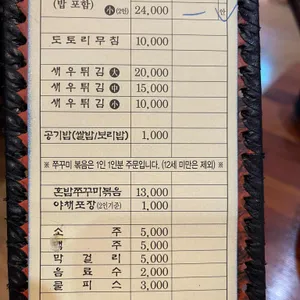 (밥 포함) 小(2인) 24,000
안
도토리무침 10,000
새우튀김 大 20,000
새우튀김 中 15,000
새우튀김 小 10,000
공기밥(쌀밥/보리밥) 1,000
※ 쭈꾸미 볶음은 1인 1인분 주문입니다. (12세 미만은 제외) ※
혼밥쭈꾸미볶음 13,000
야채포장(2인기준) 1,000
소주 5,000
맥주 5,000
막걸리 5,000
음료수 2,000
물피스 3,000